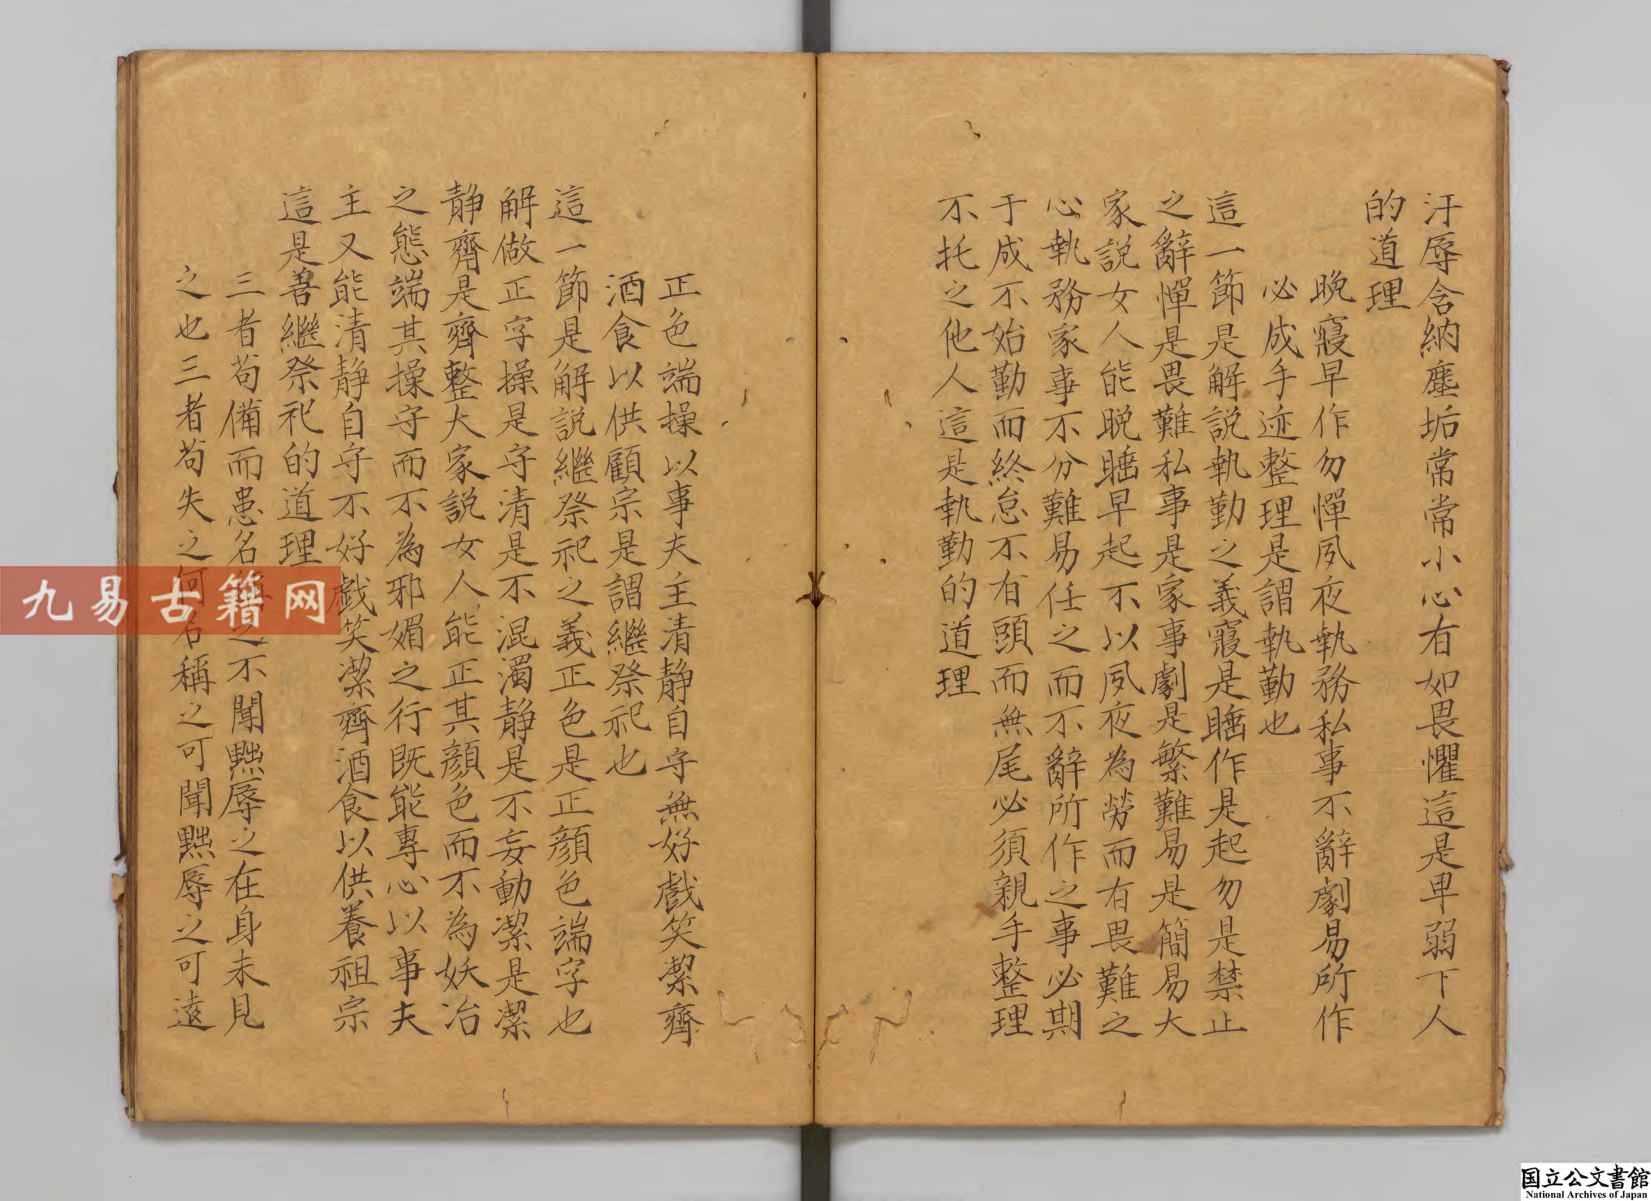 汙辱含納塵垢常常小心有如畏懼這是卑弱下人
的道理
晚寢早作勿憚夙夜執務私事不辭劇易所作
必成手迹整理是謂執勤也
這一節是解說執勤之義寢是睡作是起勿是禁止
之辭憚是畏難私事是家事劇是繁難易是簡易大
家說女人能晚睡早起不以夙夜為勞而有畏難之
心執務家事不分難易任之而不辭所作之事必期
于成不始勤而終怠不有頭而無尾必須親手整理
不托之他人這是執勤的道理
正色端操以事夫主清静自守無好戲笑潔齊
酒食以供顧宗是謂繼祭祀也
這一節是解說繼祭祀之義正色是正顔色端字也
解做正字操是守清是不混濁静是不妄動潔是潔
静齊是齊整大家說女人能正其顔色而不為妖冶
之態端其操守而不為邪媚之行既能專心以事夫
主又能清静自守不好戲笑潔齊酒食以供養祖宗
這是善繼祭祀的道理
三者苟備而患名之不聞黜辱之在身未見
之也三者苟失之何名稱之可聞黜辱之可遠
九易古籍网
国立公文書館
National Archives of Japan